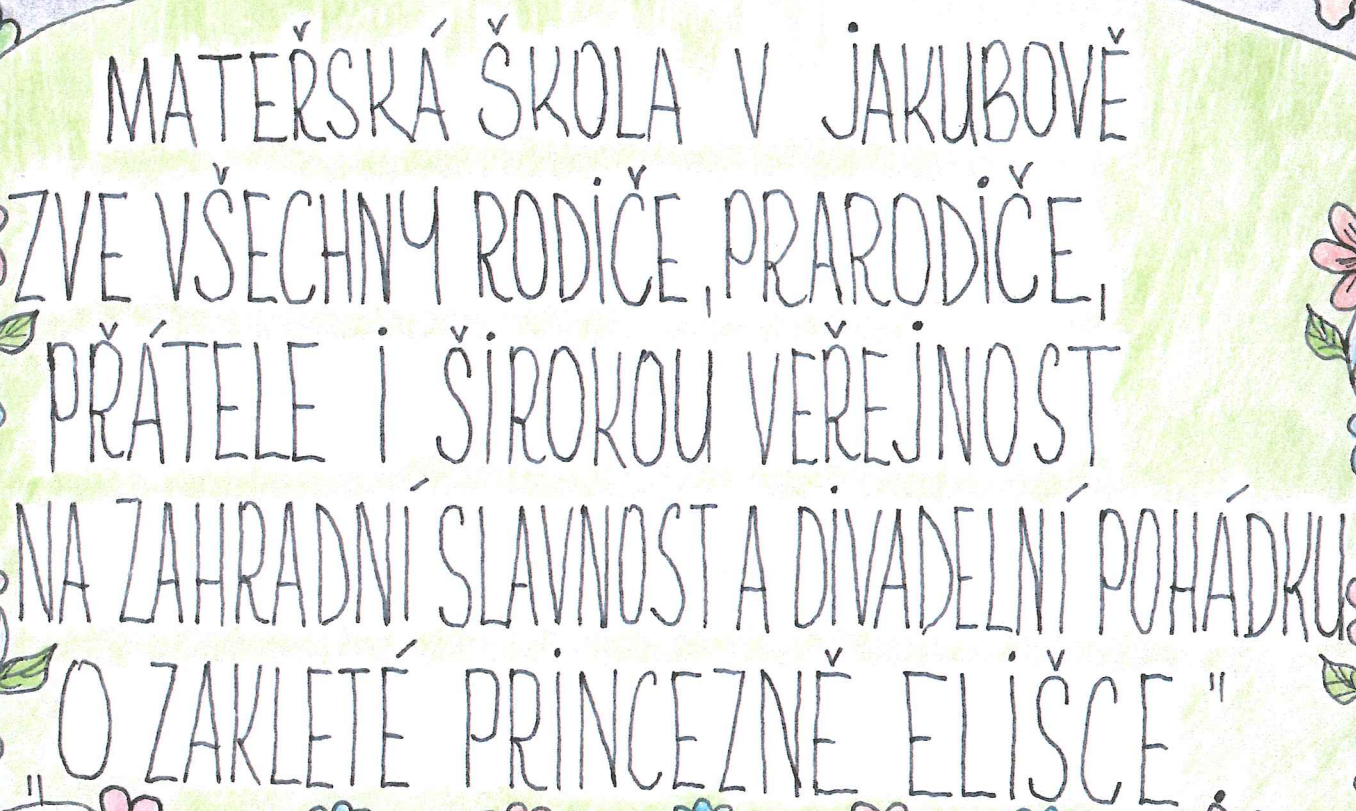 MATEŘSKÁ ŠKOLA V JAKUBOVĚ
ZVE VŠECHNY RODIČE, PRARODIČE,
PŘÁTELE I ŠIROKOU VEŘEJNOST
NA ZAHRADNÍ SLAVNOST A DIVADELNÍ POHÁDKU
„O ZAKLETÉ PRINCEZNĚ ELIŠCE".